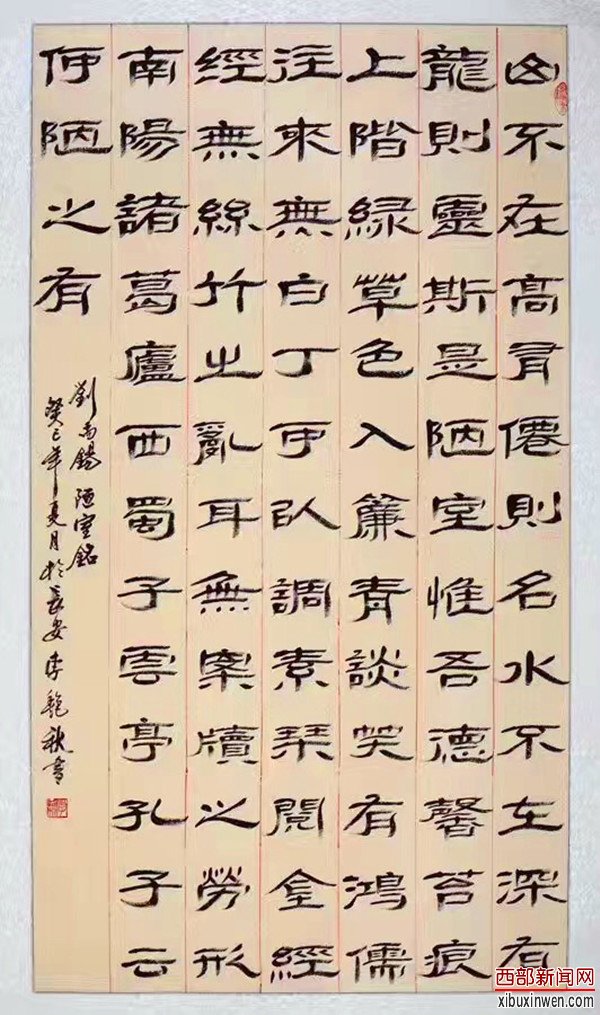 山不在高有僊則名水不在深有
龍則靈斯是陋室惟吾德馨苔痕
上階綠草色入簾青談笑有鴻儒
往來無白丁可以調素琴閱金經
經無絲竹之亂耳無案牘之勞形
南陽諸葛廬西蜀子雲亭孔子云
何陋之有
劉禹錫 陋室銘
癸巳年夏月於長安 李秋書
西部新闻网
xibuxinwen.com